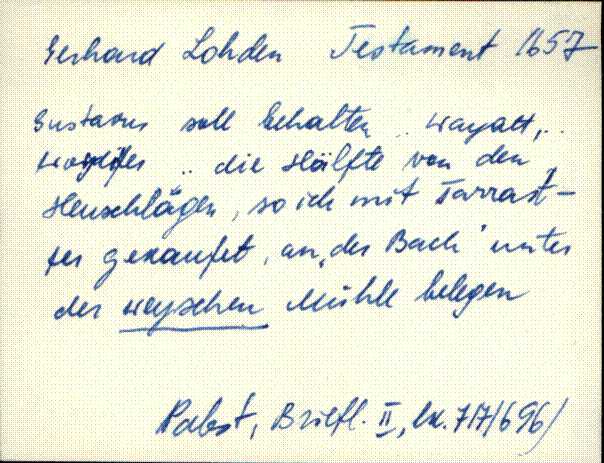 Gerhard Lohden Testament 1657
Gustavus soll behalten ..
.. die Hälfte von den
Heuschlägen, so ich mit Tarrast-
fer gekaufet, an „der Bach" unter
der weyschen Mühle belegen
Pabst, Briefl. II, lk. 717/696/